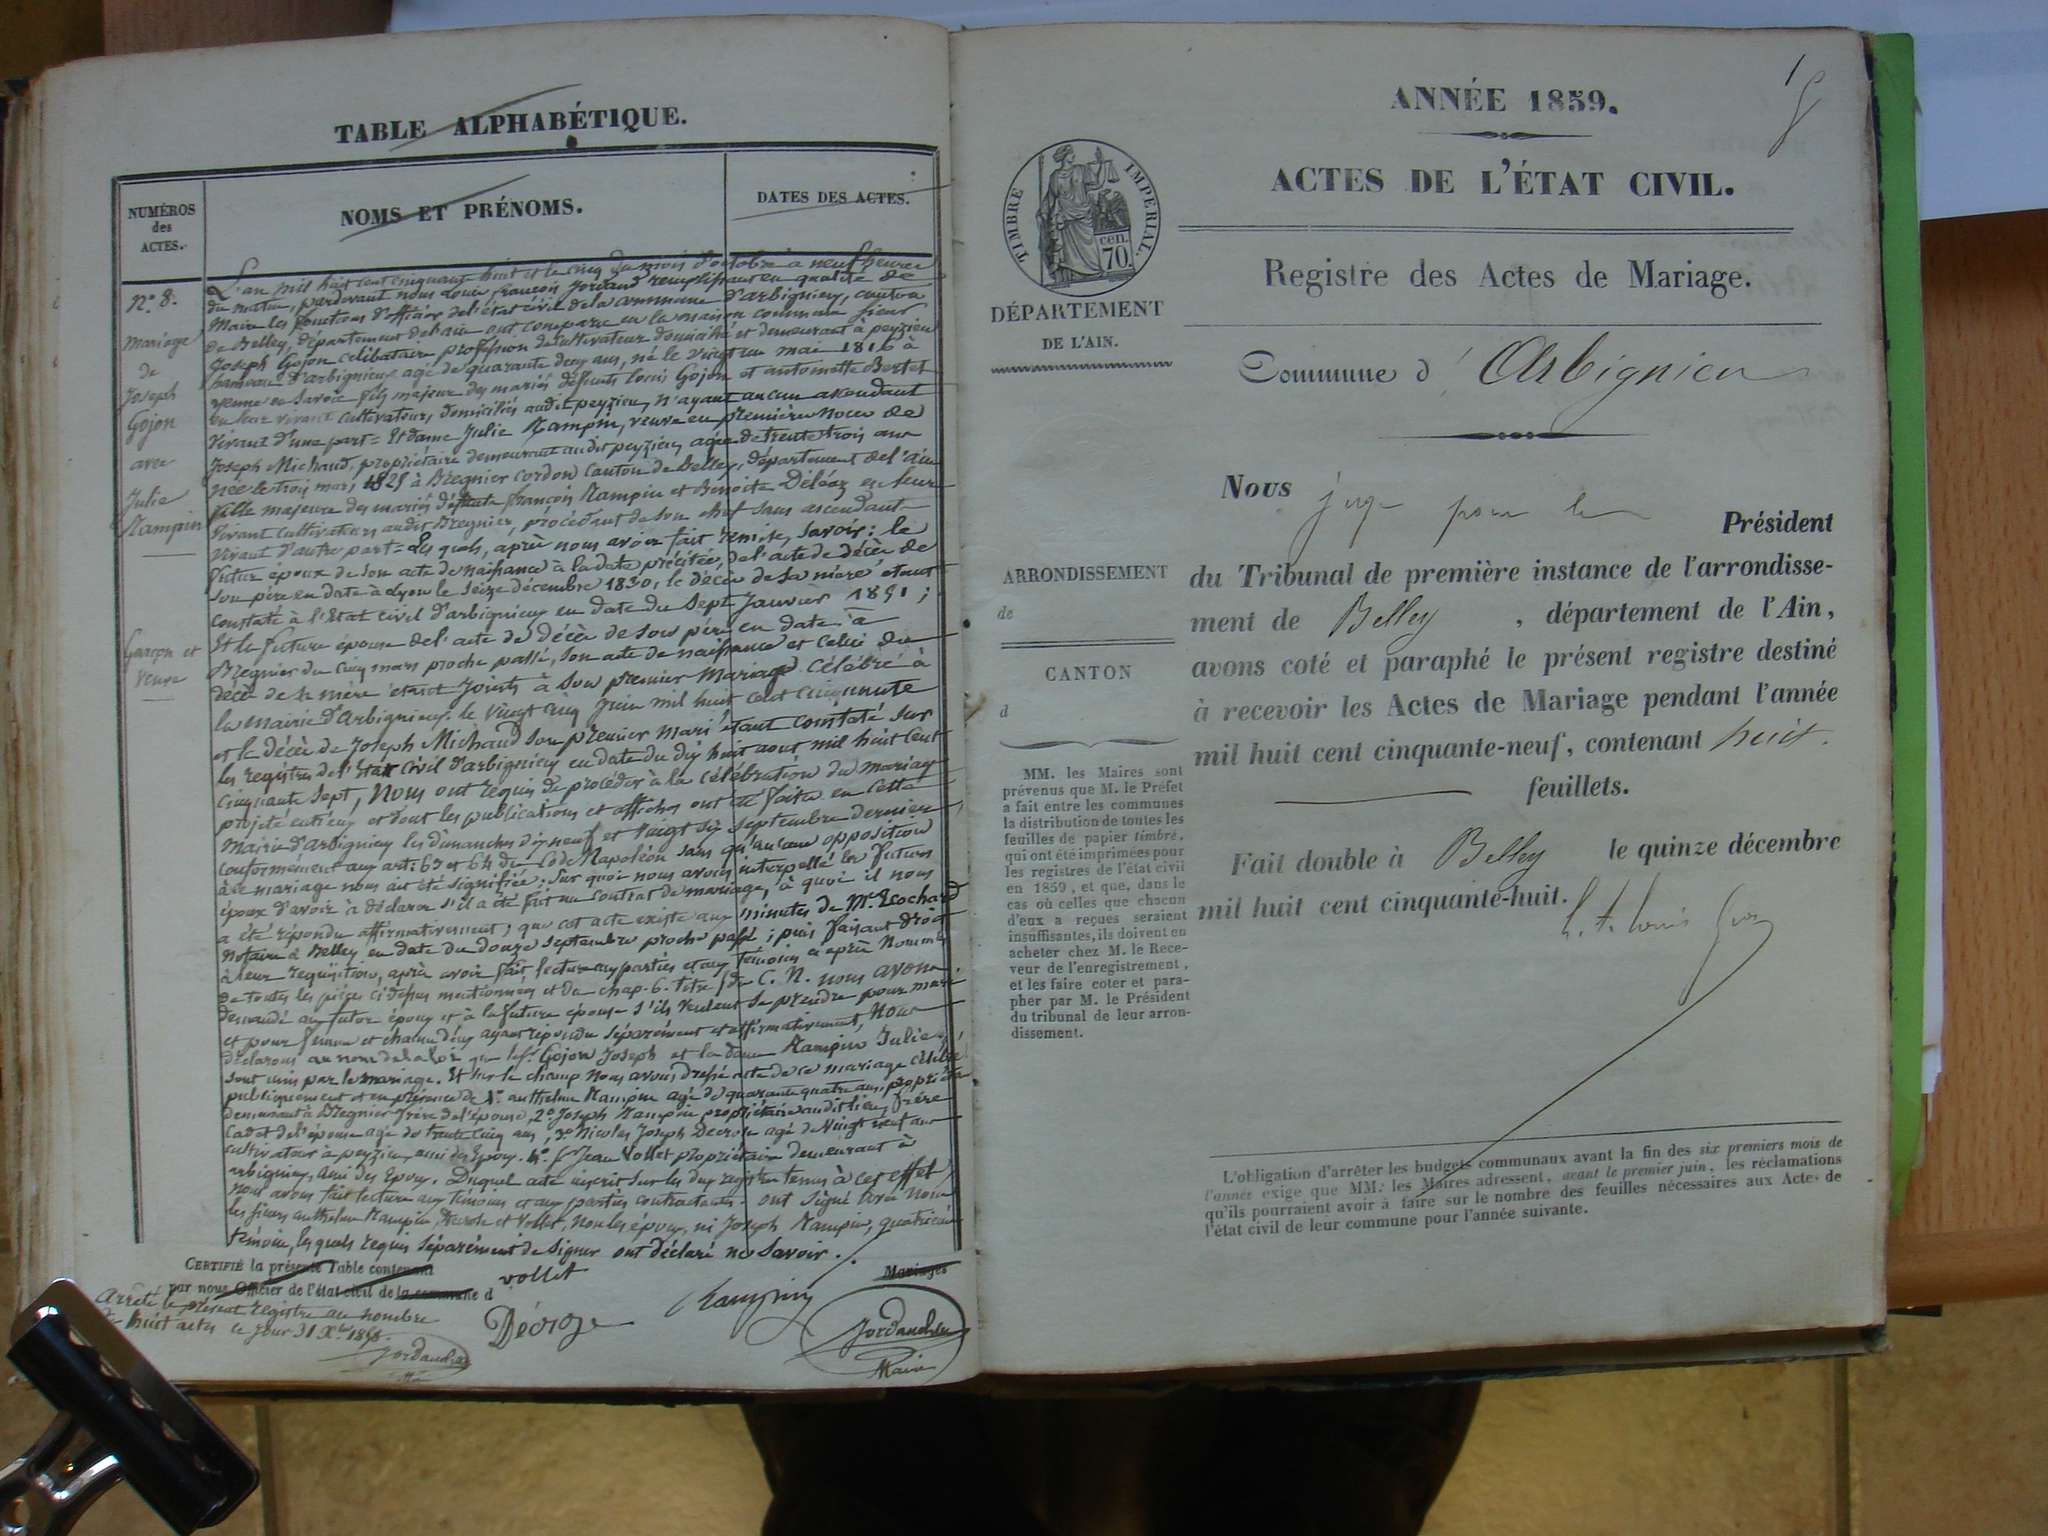 TABLE ALPHABÉTIQUE.
NUMÉROS
des
ACTES.
NOMS ET PRÉNOMS.
DATES DES ACTES.
N.° 8.
Mariage
de
Joseph
Gojon
avec
Julie
Rampin
Garçon et
Veuve
L'an mil huit cent cinquante huit et le cinq du mois d'octobre à neuf heures
du matin, pardevant nous Louis françois Jordand remplissant en qualité de
Maire les fonctions d'officier de l'état civil de la commune d'arbignieu, canton
de Belley, département de l'ain ont comparu en la maison commune sieur
Joseph Gojon celibataire profession de cultivateur domicilié et demeurant à peyzieu
hameau d'arbignieu, agé de quarante deux ans, né le vingt un mai 1816 à
yenne en Savoie fils majeur des mariés défunts Louis Gojon et antoinette Bertet
en leur vivant cultivateurs, domiciliés audit peyzieu, n'ayant aucun ascendant
vivant d'une part = Et dame Julie Rampin, veuve en première noce de
Joseph Michaud, propriétaire demeurant audit peyzieu, agée de trente trois ans
née le trois mars 1825 à Bregnier cordon canton de Belley, département de l'ain
fille majeure des mariés défunts françois Rampin et Benoite Déléaz en leur
vivant cultivateurs audit Bregnier, procédant de son chef sans ascendant
vivant d'autre part = Les quels, après nous avoir fait remise, savoir : le
futur époux de son acte de naissance à la date précitée, de l'acte de décès de
son père en date à Lyon le seize décembre 1830, le décès de sa mère étant
constaté à l'Etat civil d'arbignieu en date du sept Janvier 1851 ;
Et la future épouse de l'acte de décès de son père en date à
Bregnier du cinq mars proche passé, son acte de naissance et celui du
décès de sa mère étant joints à son premier mariage célébré à
la mairie d'Arbignieu le vingt cinq juin mil huit cent cinquante
et le décès de Joseph Michaud son premier mari étant constaté sur
les registres de l'Etat civil d'arbignieu en date du dix huit aout mil huit cent
cinquante sept, Nous ont requis de procéder à la célébration du mariage
projeté entr'eux et dont les publications et affiches ont été faites en cette
Mairie d'arbignieu les dimanches dix neuf et vingt six septembre dernier,
conformément aux art. 63 et 64 du Code Napoléon sans qu'aucune opposition
à ce mariage nous ait été signifiée ; sur quoi nous avons interpellé les futurs
époux d'avoir à déclarer s'il a été fait un contrat de mariage, à quoi il nous
a été répondu affirmativement, que cet acte existe aux minutes de Mr. Ecochard
Notaire à Belley en date du douze septembre proche passé ; puis faisant droit
à leur requisition, après avoir fait lecture aux parties et aux témoins ci après nommés
de toutes les pièces ci dessus mentionnées et du chap. 6. titre 5 du C. N. nous avons
demandé au futur époux et à la future épouse s'ils veulent se prendre pour mari
et pour femme et chacun d'eux ayant répondu séparément et affirmativement, Nous
déclarons au nom de la loi que le Sr. Gojon Joseph et la dame Rampin Julie,
sont unis par le mariage. Et sur le champ nous avons dressé acte de ce mariage célébré
publiquement et en présence de 1.° anthelme Rampin agé de quarante quatre ans, propriétaire
demeurant à Bregnier frère de l'épouse, 2.° Joseph Rampin propriétaire audit lieu, frère
cadet de l'épouse agé de trente cinq ans, 3.° Nicolas Joseph Décroze agé de vingt neuf ans
cultivateur à peyzieu ami des Epoux. 4.° Sr Jean Vollet propriétaire demeurant à
arbignieu, ami des Epoux. Duquel acte inscrit sur les deux registres tenus à cet effet,
nous avons fait lecture aux témoins et aux parties contractantes. ont signé avec nous
les sieurs anthelme Rampin, Décroze et Vollet, non les époux, ni Joseph Rampin, quatrième
témoin, les quels requis séparément de signer ont déclaré ne savoir.
CERTIFIÉ la présente Table contenant
Mariages
par nous Officier de l'état civil de la commune d
vollet
Arrêté le présent registre au nombre
de huit actes ce jour 31 Xbre 1858.
Décroze
Rampin
Maire
ANNÉE 1859.
1
ACTES DE L'ÉTAT CIVIL.
Registre des Actes de Mariage.
Commune d' Arbignieu
TIMBRE IMPÉRIAL
70 cen.
DÉPARTEMENT
DE L'AIN.
ARRONDISSEMENT
de
CANTON
d
MM. les Maires sont
prévenus que M. le Préfet
a fait entre les communes
la distribution de toutes les
feuilles de papier timbré,
qui ont été imprimées pour
les registres de l'état civil
en 1859, et que, dans le
cas où celles que chacun
d'eux a reçues seraient
insuffisantes, ils doivent en
acheter chez M. le Rece-
veur de l'enregistrement,
et les faire coter et para-
pher par M. le Président
du tribunal de leur arron-
dissement.
Nous juge pour le Président
du Tribunal de première instance de l'arrondisse-
ment de Belley, département de l'Ain,
avons coté et paraphé le présent registre destiné
à recevoir les Actes de Mariage pendant l'année
mil huit cent cinquante-neuf, contenant huit
feuillets.
Fait double à Belley le quinze décembre
mil huit cent cinquante-huit.
L'obligation d'arrêter les budgets communaux avant la fin des six premiers mois de
l'année exige que MM. les Maires adressent, avant le premier juin, les réclamations
qu'ils pourraient avoir à faire sur le nombre des feuilles nécessaires aux Actes de
l'état civil de leur commune pour l'année suivante.